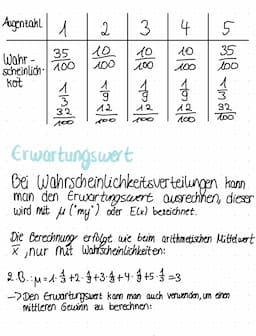 Augenzahl 1 2 3 4 5
Wahr- 35/100 10/100 10/100 10/100 35/100
scheinlich-
keit 1/3 1/9 1/9 1/9 1/3
32/100 12/100 12/100 12/100 32/100
Erwartungswert
Bei Wahrscheinlichkeitsverteilungen kann
man den Erwartungswert ausrechnen, dieser
wird mit μ ("my") oder E(x) bezeichnet.
Die Berechnung erfolgt wie beim arithmetischen Mittelwert
x̄, nur mit Wahrscheinlichkeiten:
z.B.: μ=1·1/3+2·1/9+3·1/9+4·1/9+5·1/3=3
→Den Erwartungswert kann man auch verwenden, um einen
mittleren Gewinn zu berechnen: